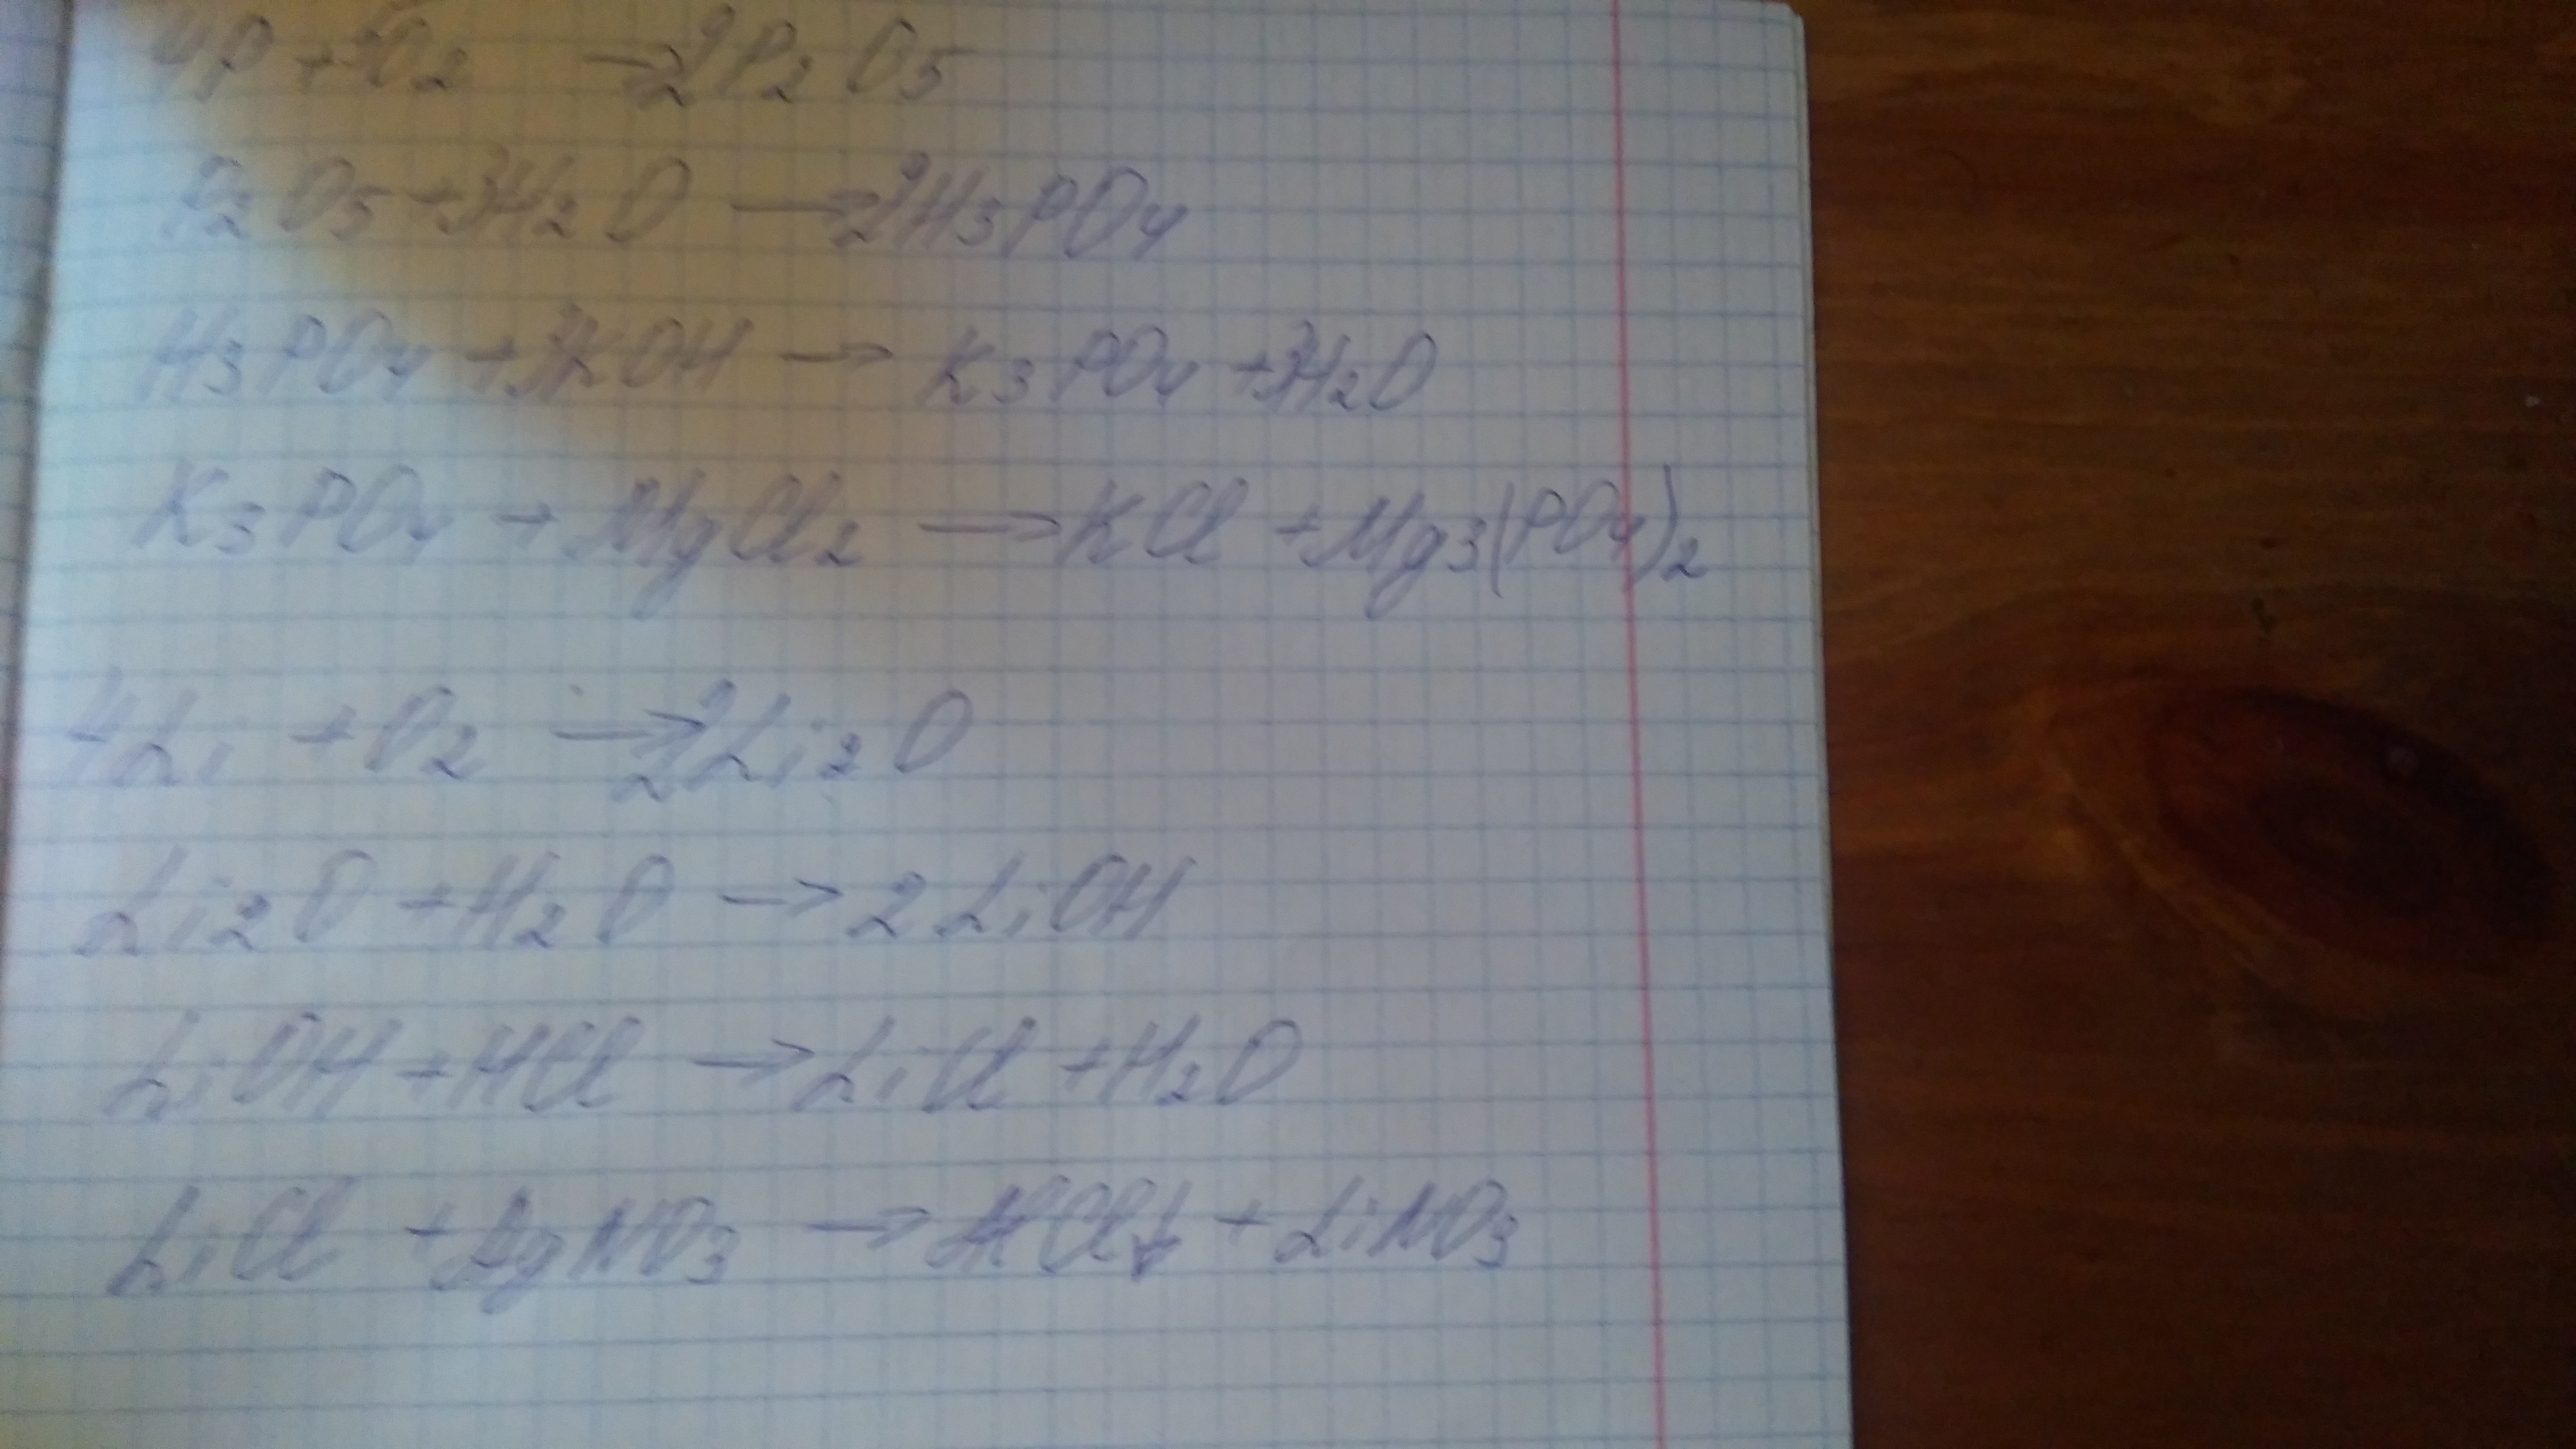 4P + 5O2 → 2P2O5
P2O5 + 3H2O → 2H3PO4
H3PO4 + 3KOH → K3PO4 + 3H2O
K3PO4 + MgCl2 → KCl + Mg3(PO4)2
4Li + O2 → 2Li2O
Li2O + H2O → 2LiOH
LiOH + HCl → LiCl + H2O
LiCl + AgNO3 → + LiNO3